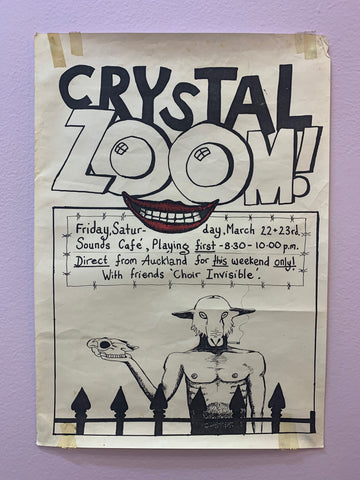 CRYSTAL
ZOOM!
Friday, Satur- day, March 22+23rd.
Sounds Café, Playing first - 8.30 - 10:00 p.m.
Direct from Auckland for this weekend only!
With friends 'Choir Invisible'.